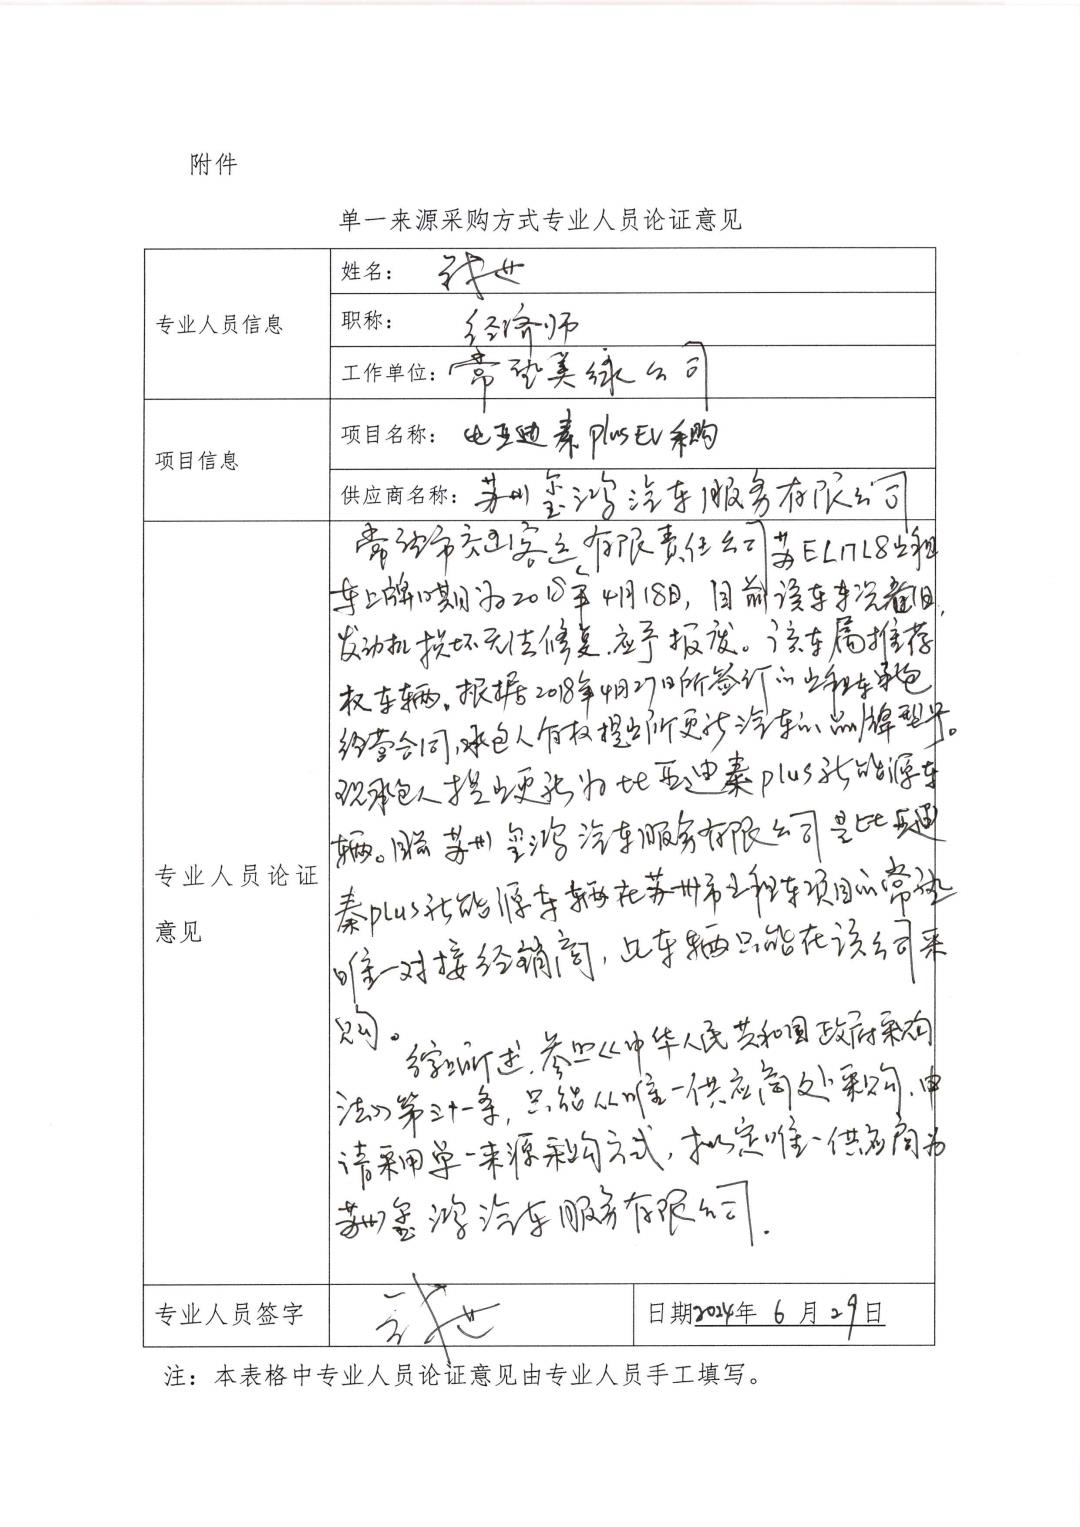 附件
单一来源采购方式专业人员论证意见
专业人员信息
姓名：
职称： 经济师
工作单位： 常熟美绿公司
项目信息
项目名称： 比亚迪秦plusEV采购
供应商名称： 苏州玺鸿汽车服务有限公司
专业人员论证意见
常熟市交通客运有限责任公司苏EL17L8出租
车上牌日期为2018年4月18日，目前该车车况着旧，
发动机损坏无法修复，应予报废。该车属推荐
权车辆。根据2018年4月27日所签订的出租车承包
经营合同，承包人有权提出所更新汽车的品牌型号。
现承包人提出更新为比亚迪秦plus新能源车
辆。目前苏州玺鸿汽车服务有限公司是比亚迪
秦plus新能源车辆在苏州市出租车项目的常熟
唯一对接经销商，此车辆只能在该公司采
购。
综上所述，参照《中华人民共和国政府采购
法》第三十一条，只能从唯一供应商处采购，申
请采用单一来源采购方式，拟定唯一供应商为
苏州玺鸿汽车服务有限公司.
专业人员签字
日期2024年 6 月 29日
注：本表格中专业人员论证意见由专业人员手工填写。